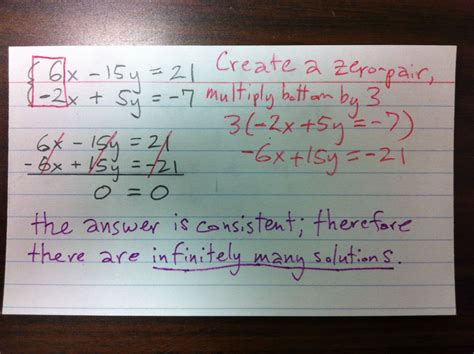 6x - 15y = 21
-2x + 5y = -7
Create a zero-pair,
multiply bottom by 3
3(-2x + 5y = -7)
-6x + 15y = -21
6x - 15y = 21
-6x + 15y = -21
0 = 0
the answer is consistent; therefore
there are infinitely many solutions.